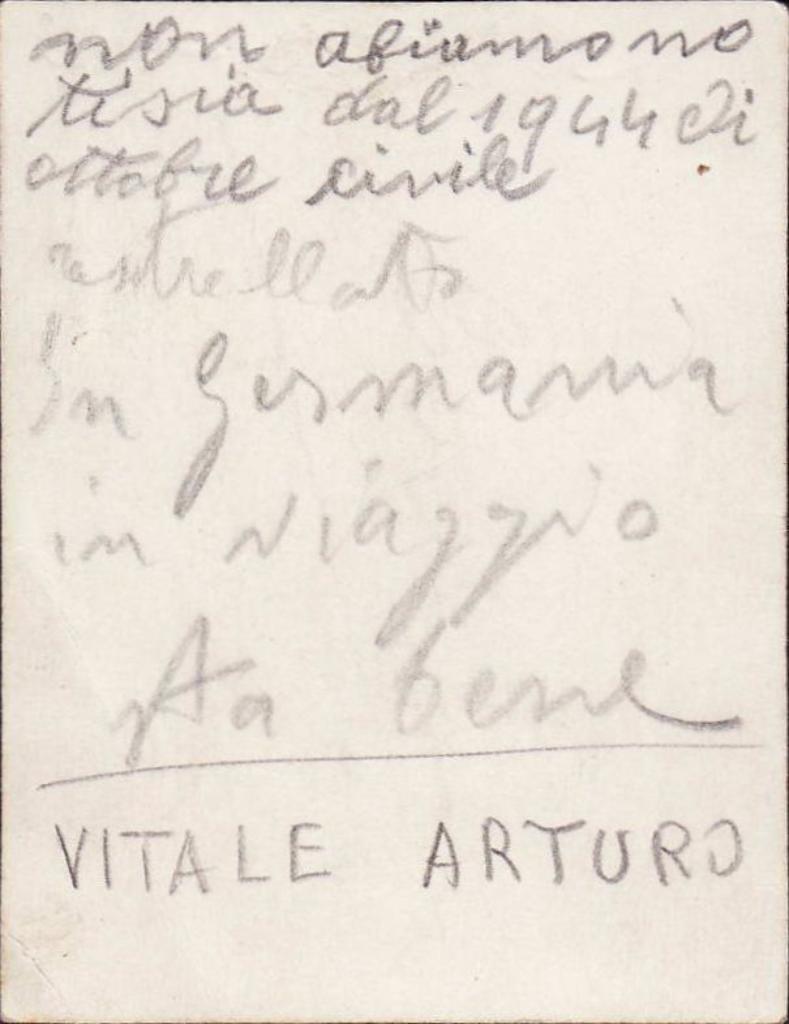 non abiamo no
tisia dal 1944 di
ottobre civile
rastrellato
In Germania
in viaggio
sta bene
VITALE ARTURO